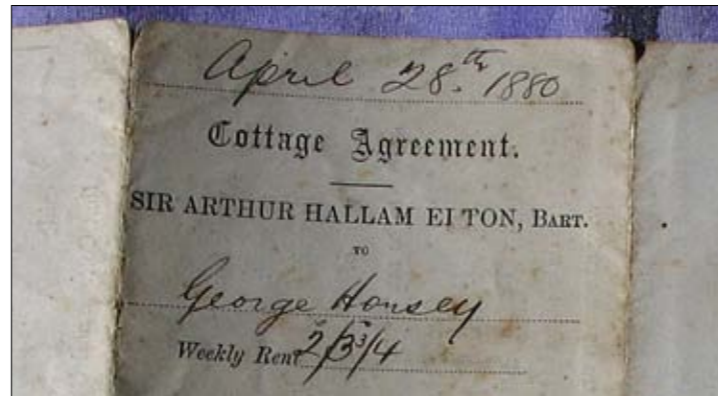 April 28.th 1880
Cottage Agreement.
SIR ARTHUR HALLAM ELTON, BART.
TO
George Honsey
Weekly Rent 2/3 3/4